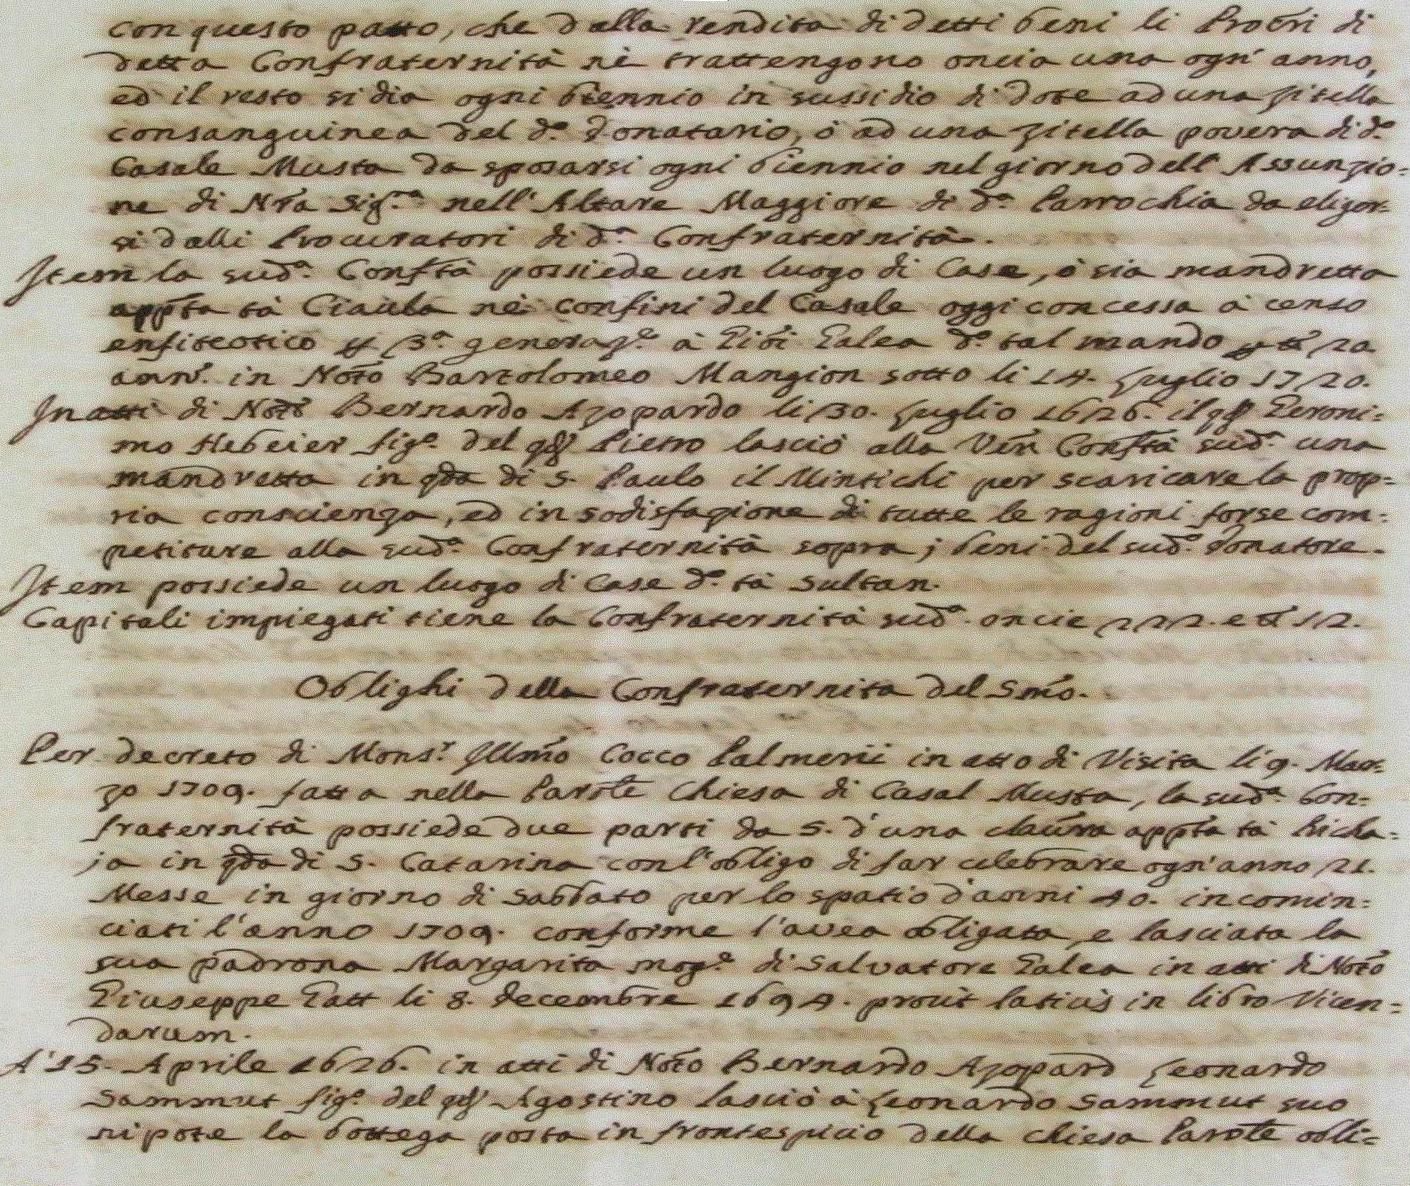 con questo patto, che dalla rendita di detti beni li Procri di
detta Confraternità nè trattengono oncia una ogn' anno,
ed il resto si dia ogni biennio in sussidio di dote ad una zitella
consanguinea del d.o Donatario, ò ad una zitella povera di d.o
Casale Musta da sposarsi ogni biennio nel giorno dell' Assunzio=
ne di Nra Sig.ra nell' Altare Maggiore di d.a Parrochia da eliger=
si dalli Procuratori di d.a Confraternità.
Item la sud.a Confta possiede un luogo di Case, ò sia mandretta
appta ta Ciaula nè confini del Casale oggi concessa à censo
enfiteotico 3.a generaz.e à Giõ Galea d.o tal mando 20
ann. in Noto Bartolomeo Mangion sotto li 14. Luglio 1720.
In atti di Noto Bernardo Azopardo li 30. Luglio 1626. il qm Geroni=
mo Hebeier fig.o del qm Pietro lasciò alla Ven Confta sud.a una
mandretta in qda di S. Paulo il Mintichi per scaricare la prop=
ria conscienza, ed in sodisfazione di tutte le ragioni forse com=
petiture alla sud.a Confraternità sopra j beni del sud.o Donatore.
Item possiede un luogo di Case d.o tà Sultan.
Capitali impiegati tiene la Confraternità sud.a oncie 222. e tt 12.
Oblighi della Confraternita del Smo.
Per decreto di Mons.r Illmo Cocco Palmerii in atto di Visita li 9. Mar=
zo 1709. fatta nella Parole Chiesa di Casal Musta, la sud.a Con=
fraternità possiede due parti da 5. d'una clausra appta tà Richa=
ja in qda di S. Catarina con l'obligo di far celebrare ogn' anno 21.
Messe in giorno di Sabbato per lo spatio d'anni 40. incomin=
ciati l'anno 1709. conforme l'avea obligata, e lasciata la
sua padrona Margarita mog.e di Salvatore Galea in atti di Noto
Giuseppe Gatt li 8. decembre 1694. prout latius in libro Vicen=
darum.
A' 15. Aprile 1626. in atti di Noto Bernardo Azopard Leonardo
Sammut fig.o del qm Agostino lasciò à Leonardo Sammut suo
nipote la bottega posta in frontespicio della chiesa Parole obli=